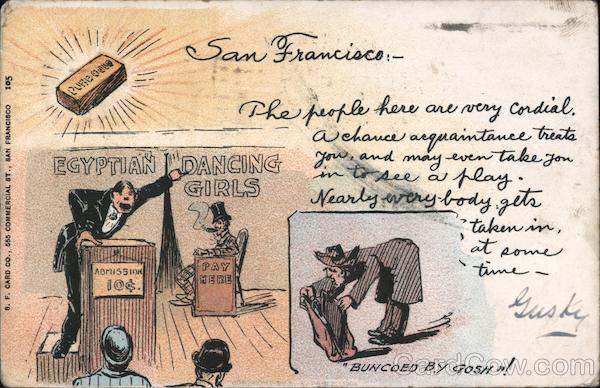 San Francisco:-
PURE GOLD
The people here are very cordial.
A chance acquaintance treats
you, and may even take you
in to see a play.
Nearly every-body gets
taken in,
at some
time –
EGYPTIAN DANCING
GIRLS
ADMISSION
10¢.
PAY
HERE
"BUNCOED BY GOSH"!
Gusky
S. F. CARD CO., 555 COMMERCIAL ST., SAN FRANCISCO 105
CardCow.com